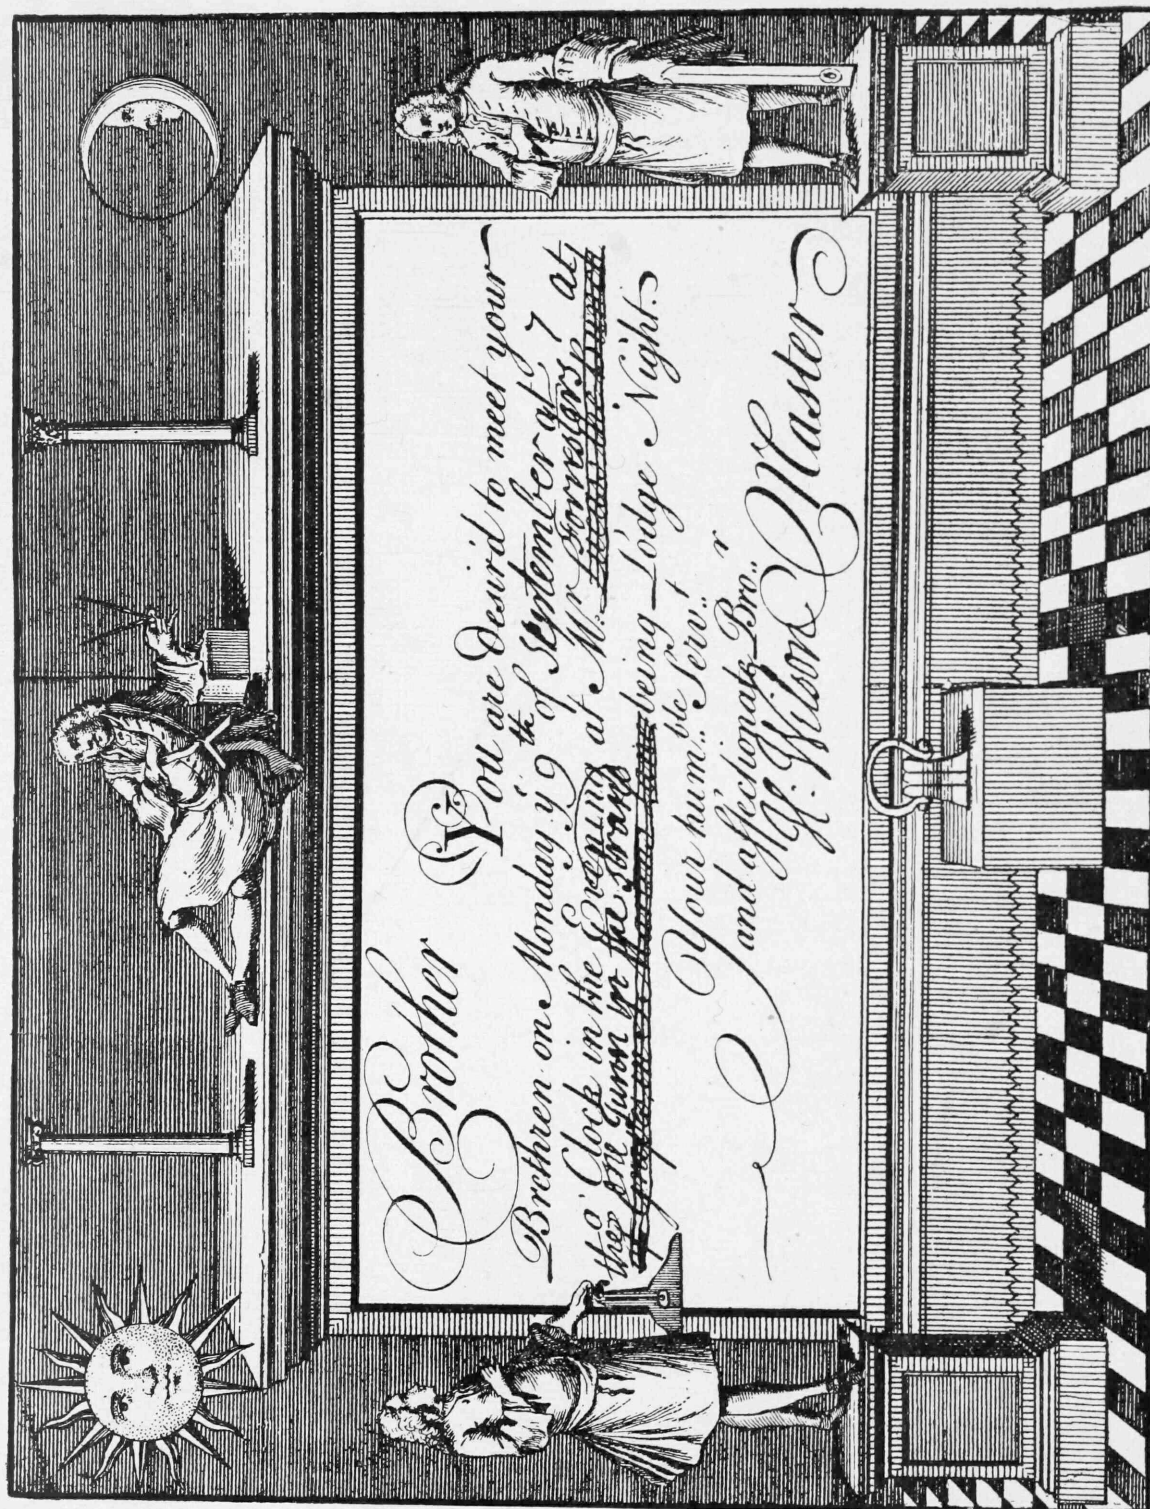 Brother
You are desir'd to meet your
Brethren on Monday yͤ 9th of September at 7
o' Clock in the Evening at Mr. Forresters at
the one Tunn in the Strand being Lodge Night.
Your hum.ble Serv.t
and affectionate Bro.r
W. Wilson Master